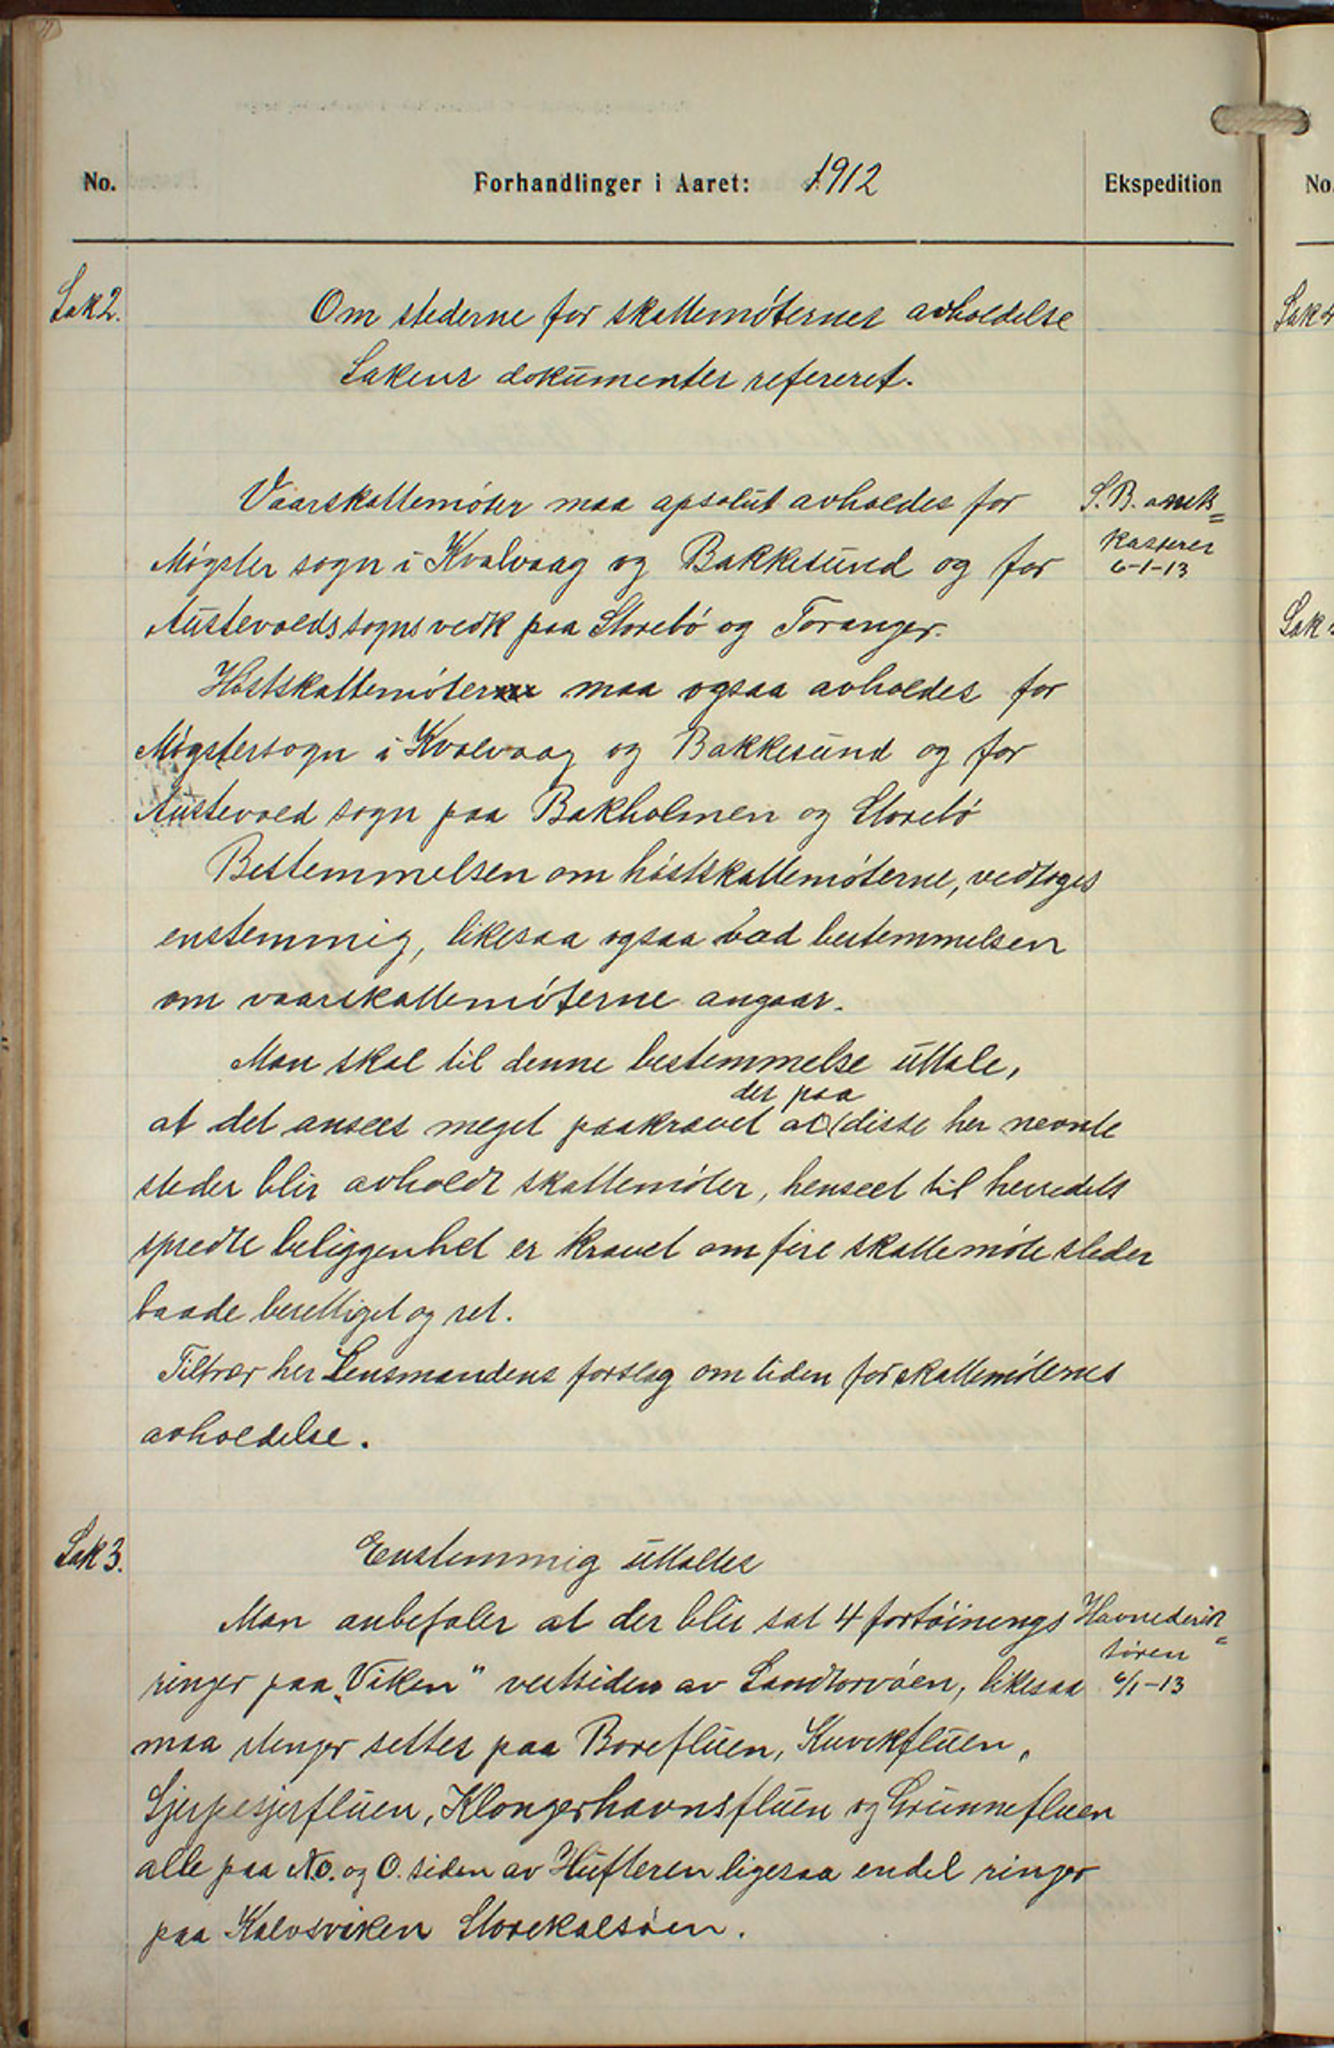 No.
Forhandlinger i Aaret: 1912
Ekspedition
No.
Sak 2.
Om stederne for skattemøternes avholdelse
Sakens dokumenter refereret.
Vaarskattemøter maa apsolut avholdes for
Møgster sogn i Kvalvaag og Bakkesund og for
Austevolds sogns vedk paa Storebø og Toranger.
Høstskattemøter maa ogsaa avholdes for
Møgstersogn i Kvalvaag og Bakkesund og for
Austevold sogn paa Bakholmen og Storebø
Bestemmelsen om høstskattemøterne, vedtoges
enstemmig, likesaa ogsaa vad bestemmelsen
om vaarskattemøterne angaar.
Man skal til denne bestemmelse uttale,
at det ansees meget paakrævet at der paa disse her nevnte
steder blir avholdt skattemøter, henseet til herredets
spredte beliggenhet er kravet om fire skattemøte steder
baade berettiget og ret.
Tiltrær her Lensmandens forslag om tiden for skattemøternes
avholdelse.
S. B. amts=
kasserer
6-1-13
Sak 3.
Enstemmig uttaltes
Man anbefaler at der blir sat 4 fortøinings
ringer paa „Viken" vestsiden av Sandtorvøen, likesaa
maa stenger settes paa Borefluen, Kuvikfluen,
Klongerhavnsfluen og Grunnefluen
alle paa No. og O. siden av Hufteren ligesaa endel ringer
paa Kalvsviken Storekalsøen.
Havnedirek=
tøren
6/1-13
Sak 4
Sak